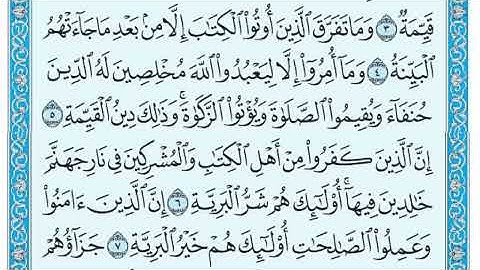 قَيِّمَةٌ ٣ وَمَا تَفَرَّقَ ٱلَّذِينَ أُوتُوا۟ ٱلْكِتَٰبَ إِلَّا مِنۢ بَعْدِ مَا جَآءَتْهُمُ
ٱلْبَيِّنَةُ ٤ وَمَآ أُمِرُوٓا۟ إِلَّا لِيَعْبُدُوا۟ ٱللَّهَ مُخْلِصِينَ لَهُ ٱلدِّينَ
حُنَفَآءَ وَيُقِيمُوا۟ ٱلصَّلَوٰةَ وَيُؤْتُوا۟ ٱلزَّكَوٰةَ ۚ وَذَٰلِكَ دِينُ ٱلْقَيِّمَةِ ٥
إِنَّ ٱلَّذِينَ كَفَرُوا۟ مِنْ أَهْلِ ٱلْكِتَٰبِ وَٱلْمُشْرِكِينَ فِى نَارِ جَهَنَّمَ
خَٰلِدِينَ فِيهَآ ۚ أُو۟لَٰٓئِكَ هُمْ شَرُّ ٱلْبَرِيَّةِ ٦ إِنَّ ٱلَّذِينَ ءَامَنُوا۟
وَعَمِلُوا۟ ٱلصَّٰلِحَٰتِ أُو۟لَٰٓئِكَ هُمْ خَيْرُ ٱلْبَرِيَّةِ ٧ جَزَآؤُهُمْ